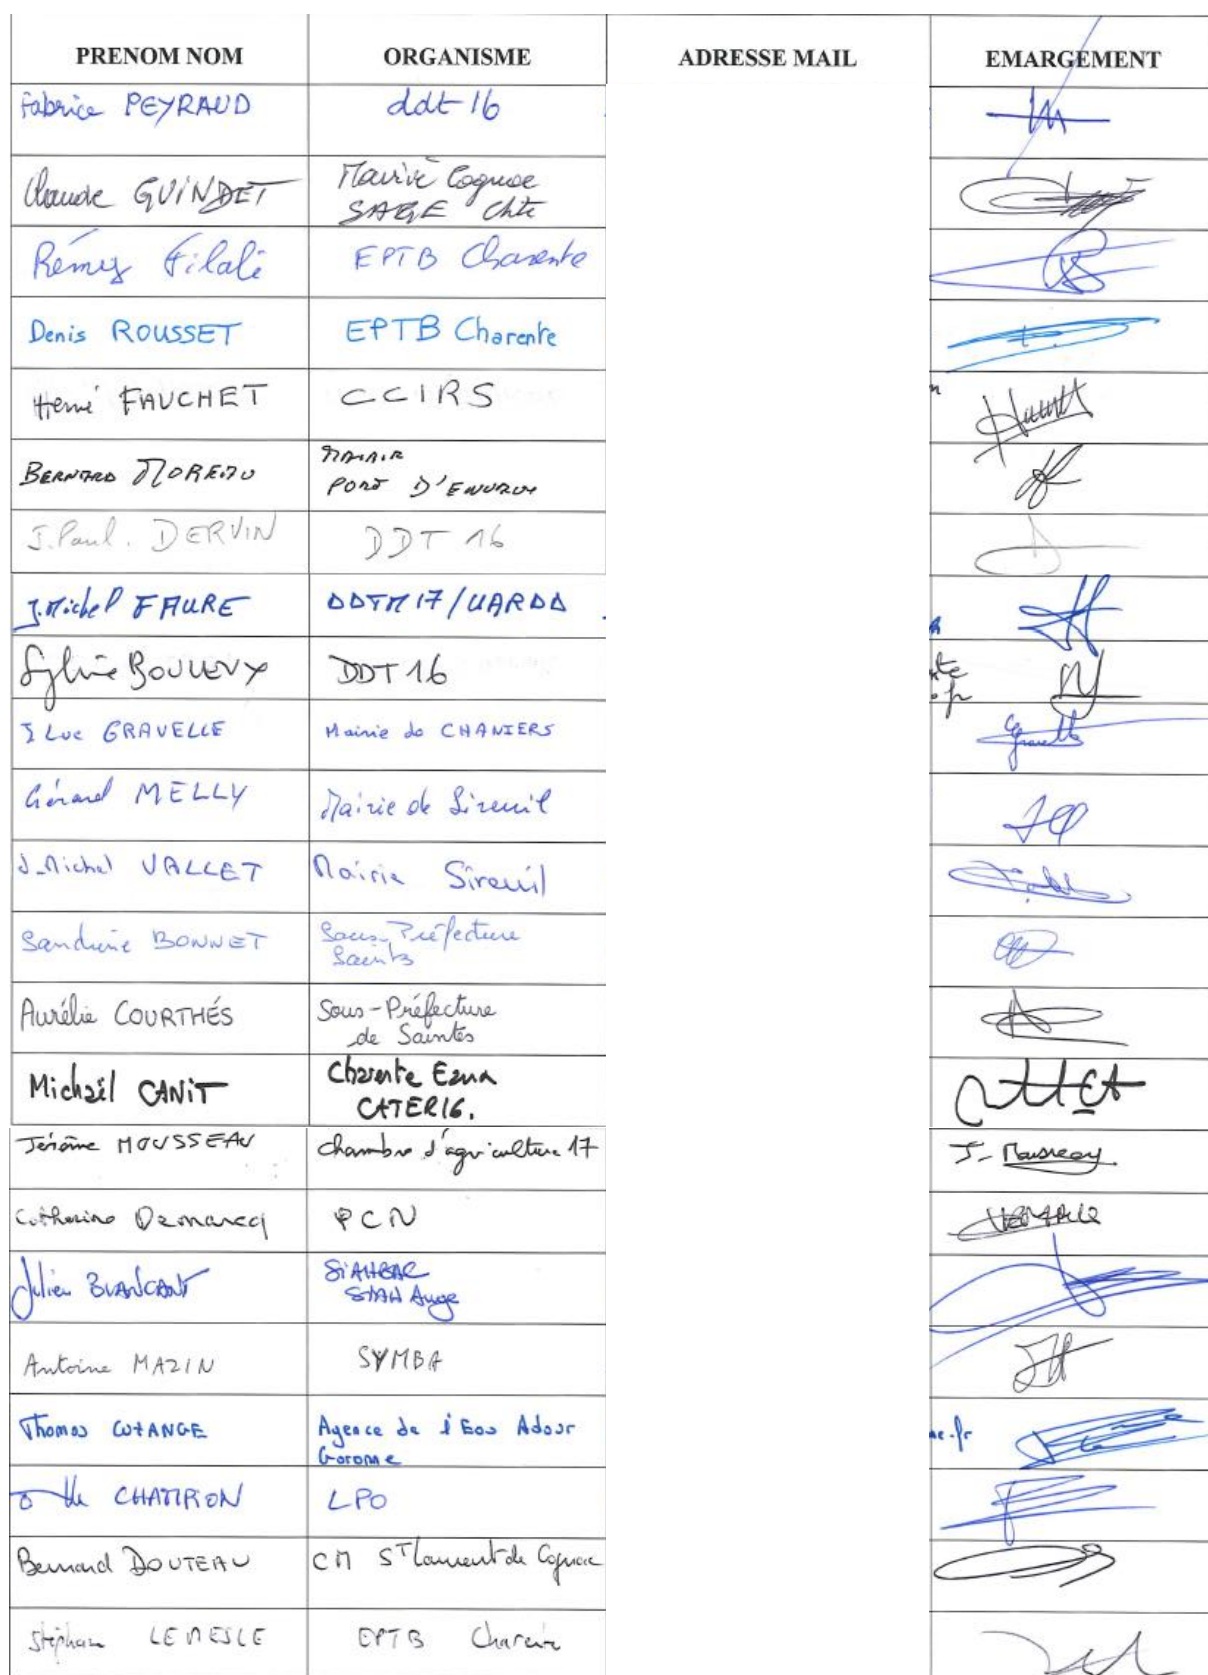 PRENOM NOM ORGANISME ADRESSE MAIL EMARGEMENT
Fabrice PEYRAUD ddt 16
Claude GUINDET Mairie Cognac
SAGE Chte
Rémy Filali EPTB Charente
Denis ROUSSET EPTB Charente
Hervé FAUCHET CCIRS
BERNARD MOREAU MAIRIE
PORT D'ENVAUX
J.Paul. DERVIN DDT 16
J.Michel FAURE DDTM 17/UARDD
Sylvie DDT 16
J Luc GRAVELLE Mairie de CHANIERS
Gérard MELLY Mairie de Sireuil
J-Michel VALLET Mairie Sireuil
Sandrine BONNET Sous-Préfecture
Saintes
Aurélie COURTHÉS Sous-Préfecture
de Saintes
Michaël CANIT Charente Eaux
CATER16.
Jérôme MOUSSEAU Chambre d'agriculture 17
J- Mousseau
Catherine Demarcq PCN
Julien BLANCANT SIAHBAC
SIAH Auge
Antoine MAZIN SYMBA
Thomas Agence de l'Eau Adour
Garonne
ne.fr
CHAMPION LPO
Bernard DOUTEAU CM St Laurent de Cognac
Stéphane LEMESLE EPTB Charente